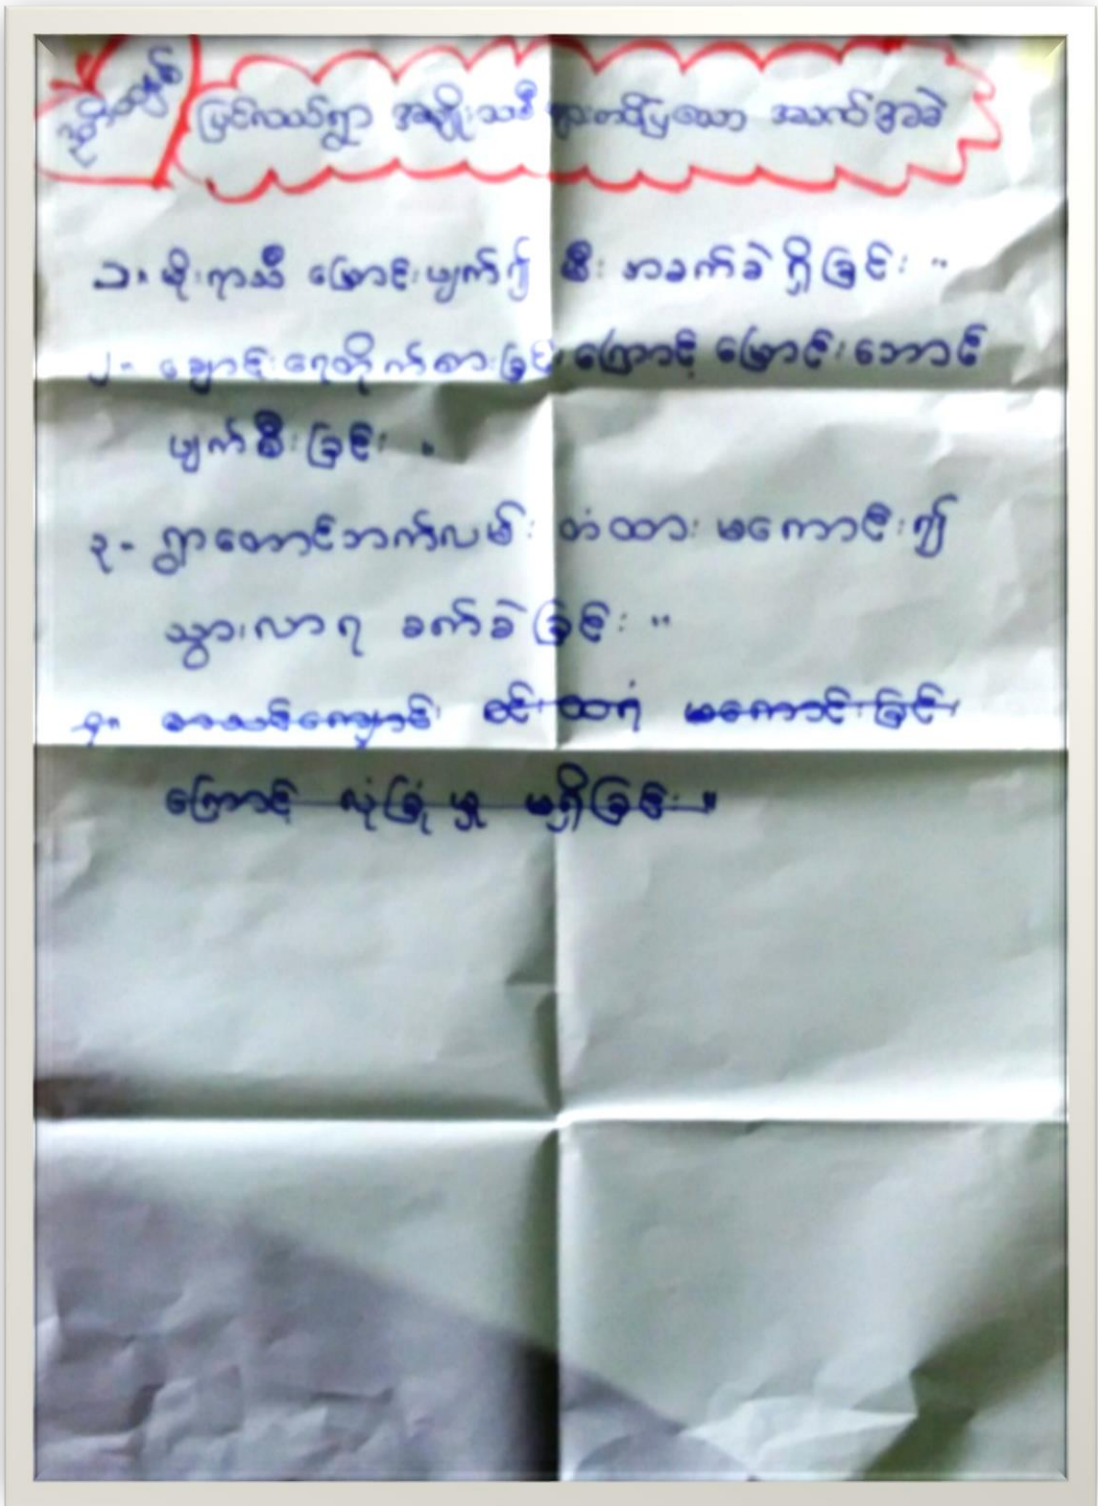 ဒုတိယနှစ်
ပြင်လယ်ရွာ အမျိုးသမီး များတင်ပြသော အခက်အခဲ
၁။ မိုးရာသီ မြောင်းပျက်၍ စီး အခက်ခဲ ရှိခြင်း ။
၂- ချောင်းရေတိုက်စားခြင်းကြောင့် မြောင်းဘောင်
ပျက်စီးခြင်း ။
၃- ရွာတောင်ဘက်လမ်း တံထား မကောင်း၍
သွားလာရ ခက်ခဲခြင်း ။
၄။ စာသင်ကျောင်း ဝင်းထရံ မကောင်းခြင်း
ကြောင့် လုံခြုံမှု မရှိခြင်း ။